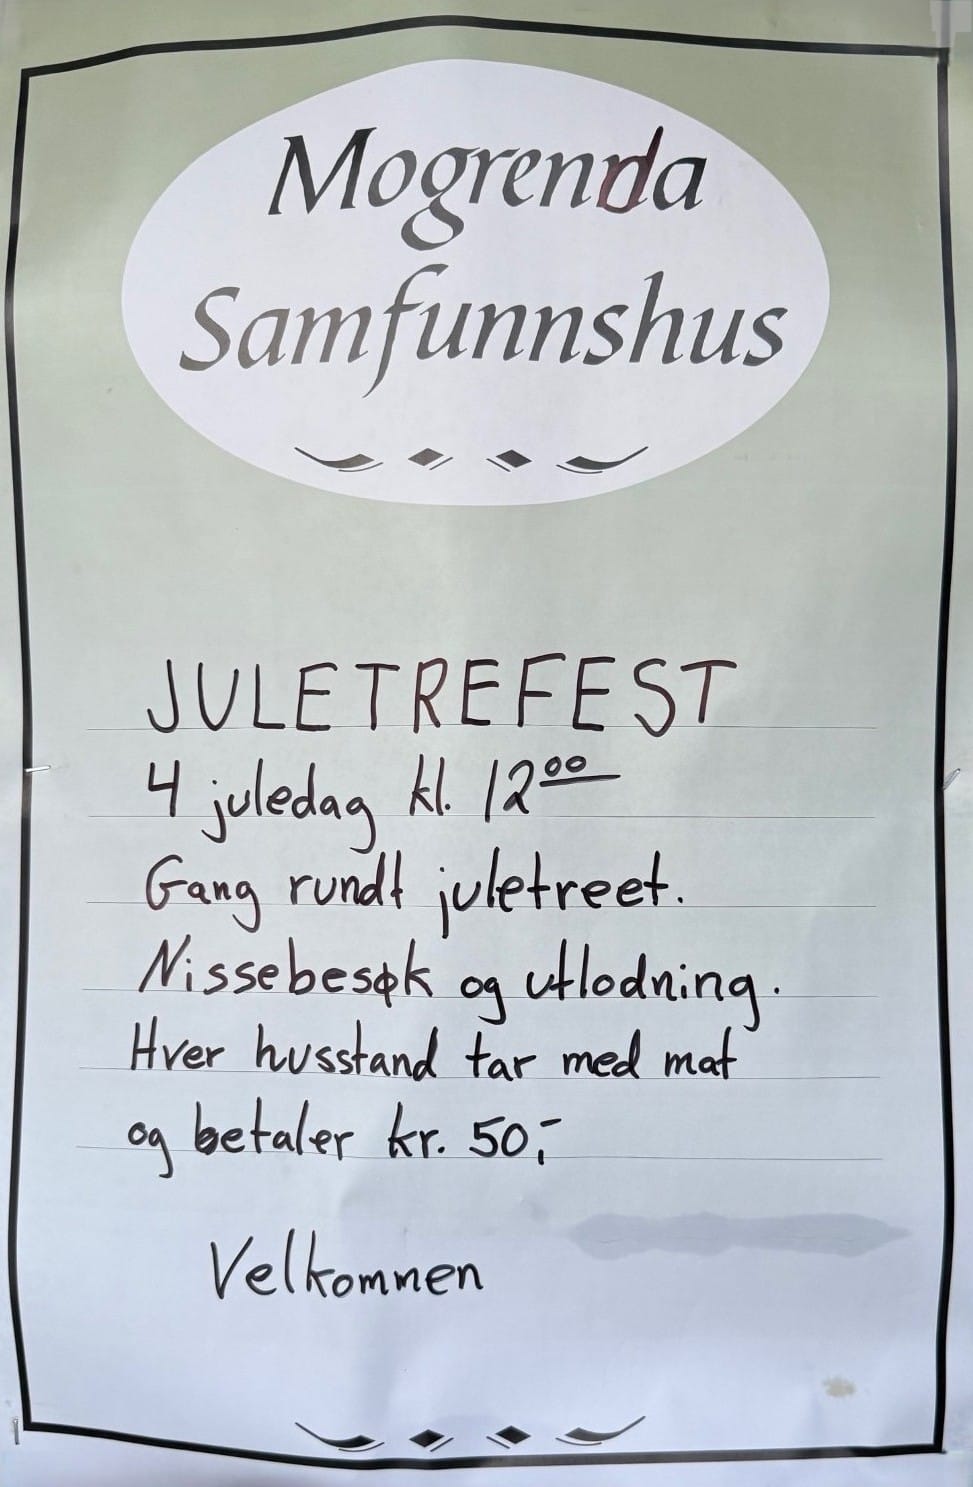 Mogrenda
Samfunnshus
JULETREFEST
4 juledag kl. 12⁰⁰
Gang rundt juletreet.
Nissebesøk og utlodning.
Hver husstand tar med mat
og betaler kr. 50,-
Velkommen